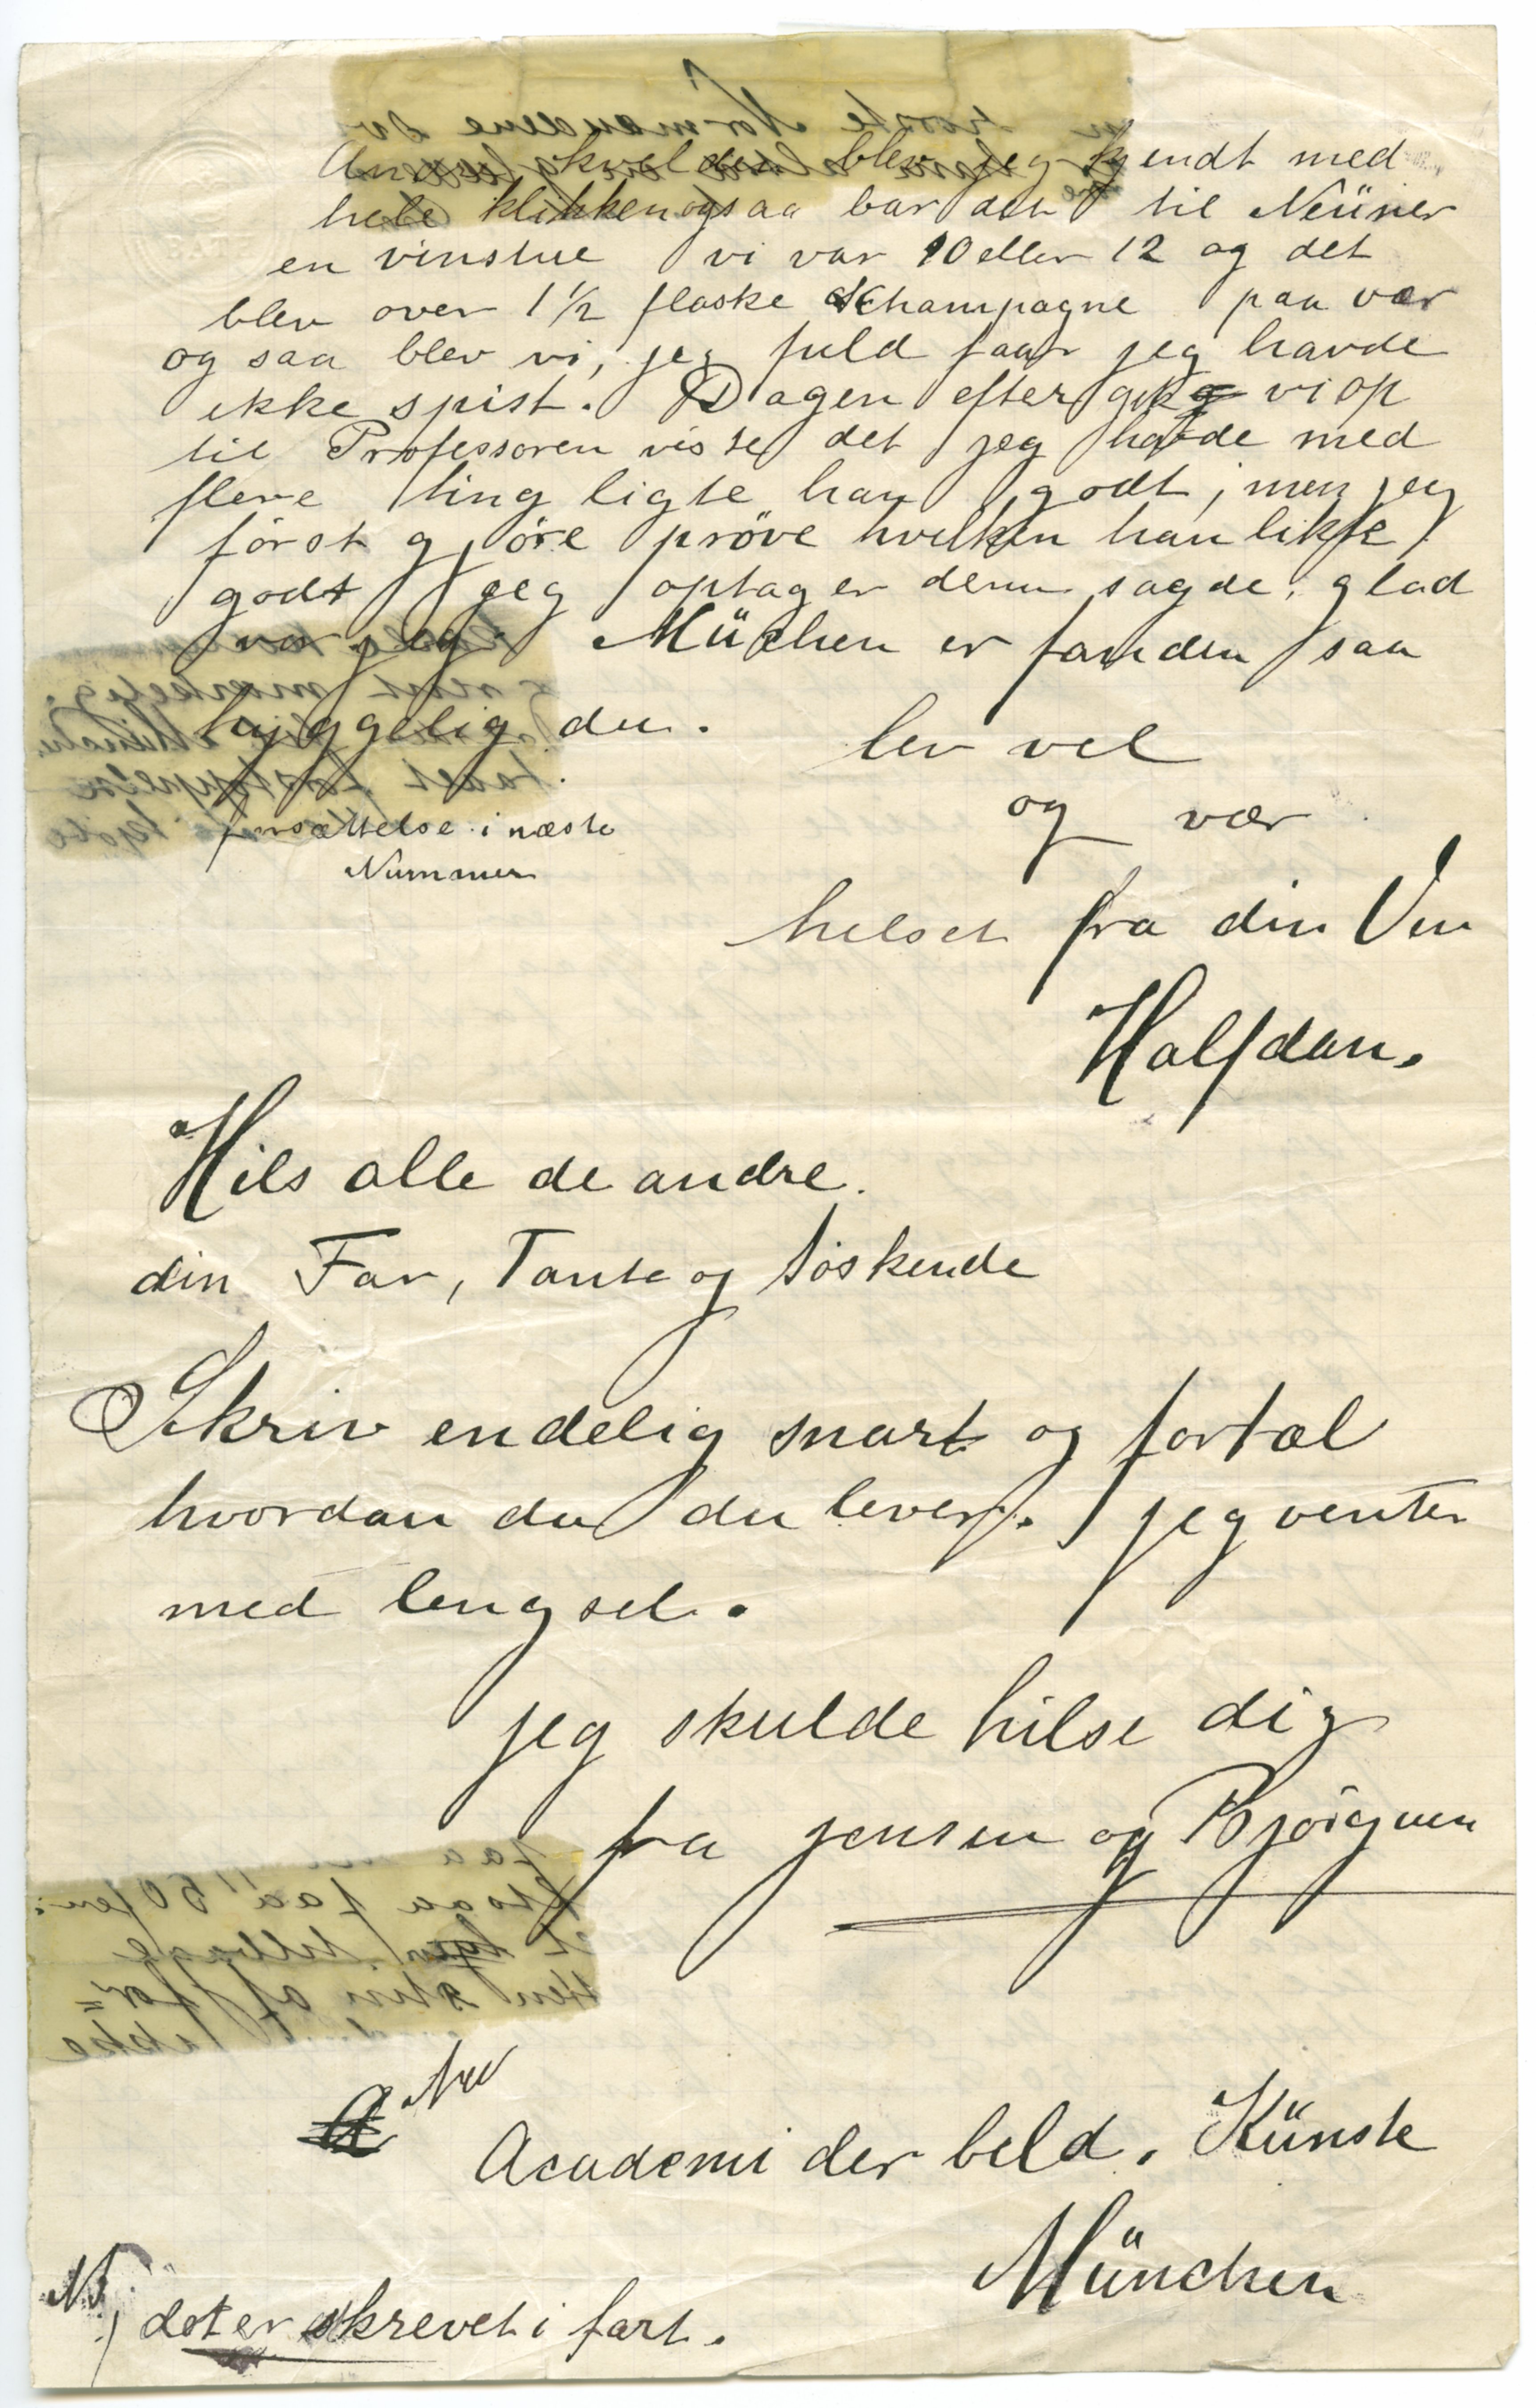 Anden kvelden blev jeg kjendt med
hele klikken ogsaa bar det til Neüner
en vinstue vi var 10 eller 12 og det
blev over 1 1/2 flaske Schampagne paa vær
og saa blev vi, jeg fuld faar jeg havde
ikke spist. Dagen efter gik vi op
til Professoren viste det jeg havde med
flere ting ligte han godt, men jeg
først gjøre prøve hvilken han likte
godt jeg optager dem sagde, glad
var jeg. Müchen er fanden saa
hyggelig du.
lev vel
og vær
forsættelse i næste
Nummer
helset fra din Ven
Halfdan.
Hils alle de andre.
din Far, Tante og Søskende
Skriv endelig snart og fortæl
hvordan du du lever. jeg venter
med lengsel.
jeg skulde hilse dig
fra Jensen og
Academi der beld. Künste
München
NB. det er skrevet i fart.